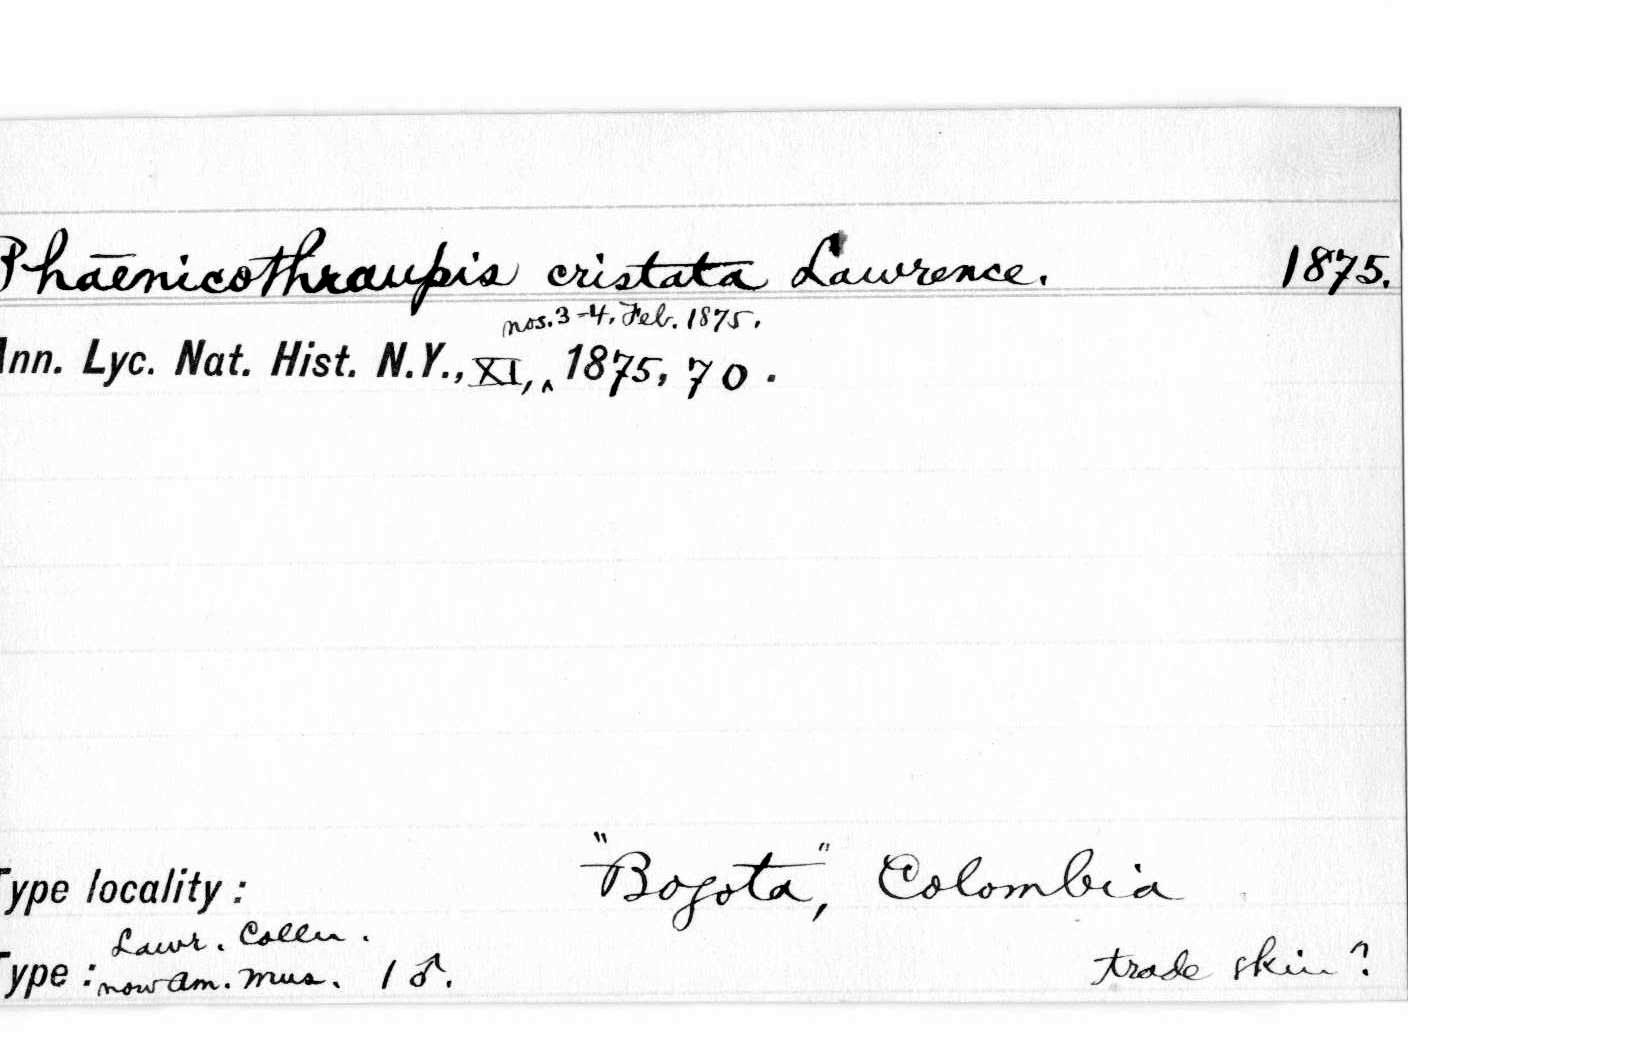 Phaenicothraupis cristata Lawrence. 1875.
nos. 3-4, Feb. 1875.
Ann. Lyc. Nat. Hist. N.Y., XI, ^ 1875, 70.
Type locality: "Bogota", Colombia
Lawr. Colln.
Type: now Am. Mus. 1 ♂. trade skin?